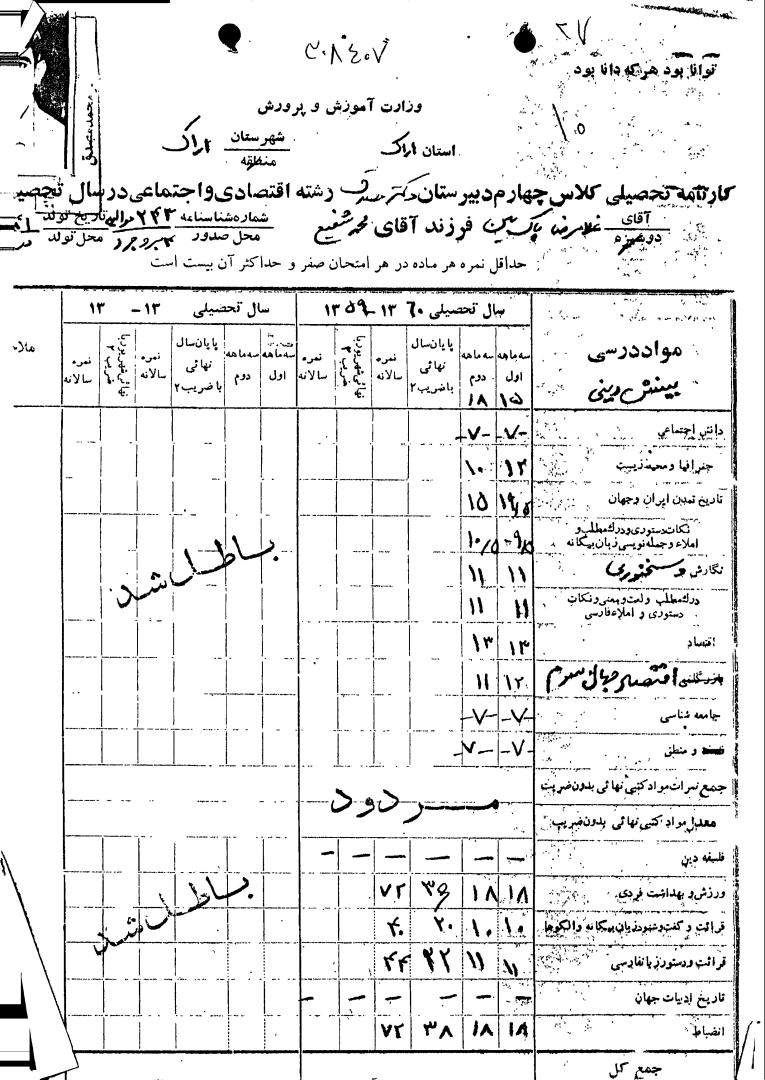 ۲۷
۳۰۸۴۰۷
توانا بود هر که دانا بود
۱۰
وزارت آموزش و پرورش
استان اراک شهرستان اراک
منطقه
محمد مصدق
کارنامه تحصیلی کلاس چهارم دبیرستان دکتر مصدق رشته اقتصادی و اجتماعی در سال تحصیلی
آقای غلامرضا پاک بین فرزند آقای محمد شفیع شماره شناسنامه ۲۴۳ تاریخ تولد
دوشیزه محل صدور بروجرد محل تولد
حداقل نمره هر ماده در هر امتحان صفر و حداکثر آن بیست است
مواد درسی سال تحصیلی ۶۰ ۱۳ - ۵۹ ۱۳ سال تحصیلی ۱۳ - ۱۳
سه ماهه اول سه ماهه دوم پایان سال نهائی با ضریب ۲ نمره سالانه نهائی شهریور با ضریب ۲ نمره سالانه سه ماهه اول سه ماهه دوم پایان سال نهائی با ضریب ۲ نمره سالانه نهائی شهریور با ضریب ۲ نمره سالانه
بینش دینی ۱۵ ۱۸
دانش اجتماعی -۷- -۷-
جغرافیا و محیط زیست ۱۲ ۱۰
تاریخ تمدن ایران و جهان ۱۹/۵ ۱۵
نکات دستوری و درک مطلب و
املاء و جمله نویسی زبان بیگانه ۹/۵ ۱۰/۵
نگارش و سخنوری ۱۱ ۱۱
درک مطلب و لغت و معنی و نکات
دستوری و املاء فارسی ۱۱ ۱۱
اقتصاد ۱۳ ۱۳
اقتصاد جهان سوم ۱۲ ۱۱
جامعه شناسی -۷- -۷-
و منطق -۷- -۷-
باطل شد
جمع نمرات مواد کتبی نهائی بدون ضریب
مردود
معدل مواد کتبی نهائی بدون ضریب
فلسفه دین — — — — — —
ورزش و بهداشت فردی ۱۸ ۱۸ ۳۶ ۷۲
قرائت و گفت و شنود زبان بیگانه و الگوها ۱۰ ۱۰ ۲۰ ۴۰
قرائت و دستور زبان فارسی ۱۱ ۱۱ ۲۲ ۴۴
باطل شد
تاریخ ادبیات جهان — — — — — —
انضباط ۱۸ ۱۸ ۳۸ ۷۲
جمع کل